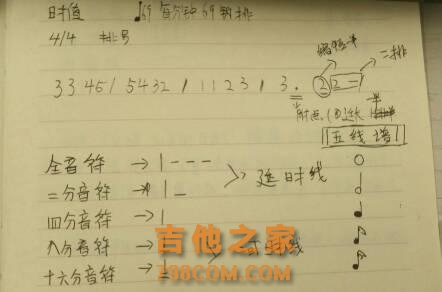 时值 ♩69 每分钟69拍
4/4 拍号
缩短一半
二拍
33 451 5432 1 11 23 1 3. 2 2 - 1
附点
五线谱
全音符 → 1 - - -
二分音符 → 1 -
> 延时线
四分音符 → 1
八分音符 →
十六分音符 → 1
吉他之家
798COM.COM